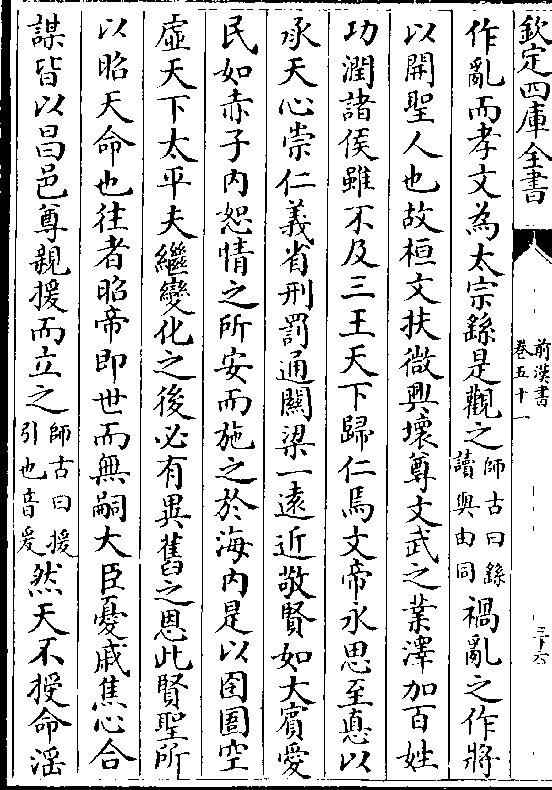 欽定四庫全書
前漢書
卷五十一
三十六
作亂而孝文為太宗繇是觀之師古曰繇
讀與由同禍亂之作將
以開聖人也故桓文扶微興壞尊文武之業澤加百姓
功潤諸侯雖不及三王天下歸仁焉文帝永思至悳以
承天心崇仁義省刑罰通關梁一遠近敬賢如大賓愛
民如赤子内恕情之所安而施之於海内是以囹圄空
虛天下太平夫繼變化之後必有異舊之恩此賢聖所
以昭天命也往者昭帝即世而無嗣大臣憂戚焦心合
謀皆以昌邑尊親援而立之師古曰援
引也音爰然天不授命滛